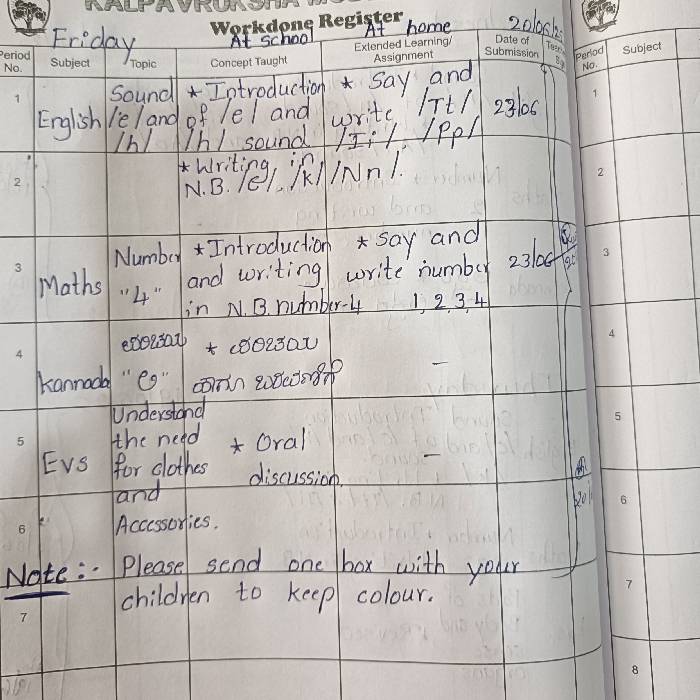 KALPAVRUKSHA
Workdone Register
Friday At school At home 20/06/25
Period No. Subject Topic Concept Taught Extended Learning/ Assignment Date of Submission
1 English Sound /e/ and /h/ * Introduction of /e/ and /h/ sound * Say and write /Tt/ /Ii/, /Pp/ 23/06
2 * Writing in N.B. /e/, /k/ /Nn/.
3 Maths Number "4" * Introduction and writing in N.B. number-4 * Say and write number 1, 2, 3, 4 23/06
4 Kannada "ಅ" * –
5 Evs Understand the need for clothes and Accessories. * Oral discussion. –
6
Note :- Please send one box with your
children to keep colour.
7
Period No. Subject
1
2
3
4
5
6
7
8